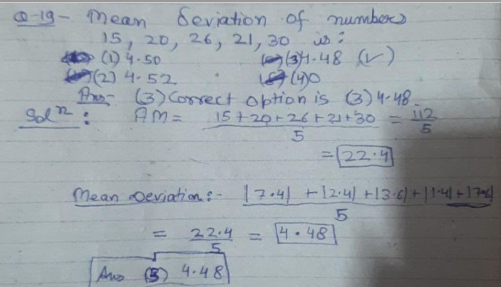 Q-19- Mean Deviation of numbers
15, 20, 26, 21, 30 is:
(1) 4.50 (3) 4.48 (✓)
(2) 4.52 (4) 0
Ans- (3) Correct option is (3) 4.48.
Solⁿ: AM = 15+20+26+21+30 = 112
5 5
= 22.4
Mean Deviation:- |7.4| + |2.4| + |3.6| + |1.4| + |7.6|
5
= 22.4 = 4.48
5
Ans (3) 4.48